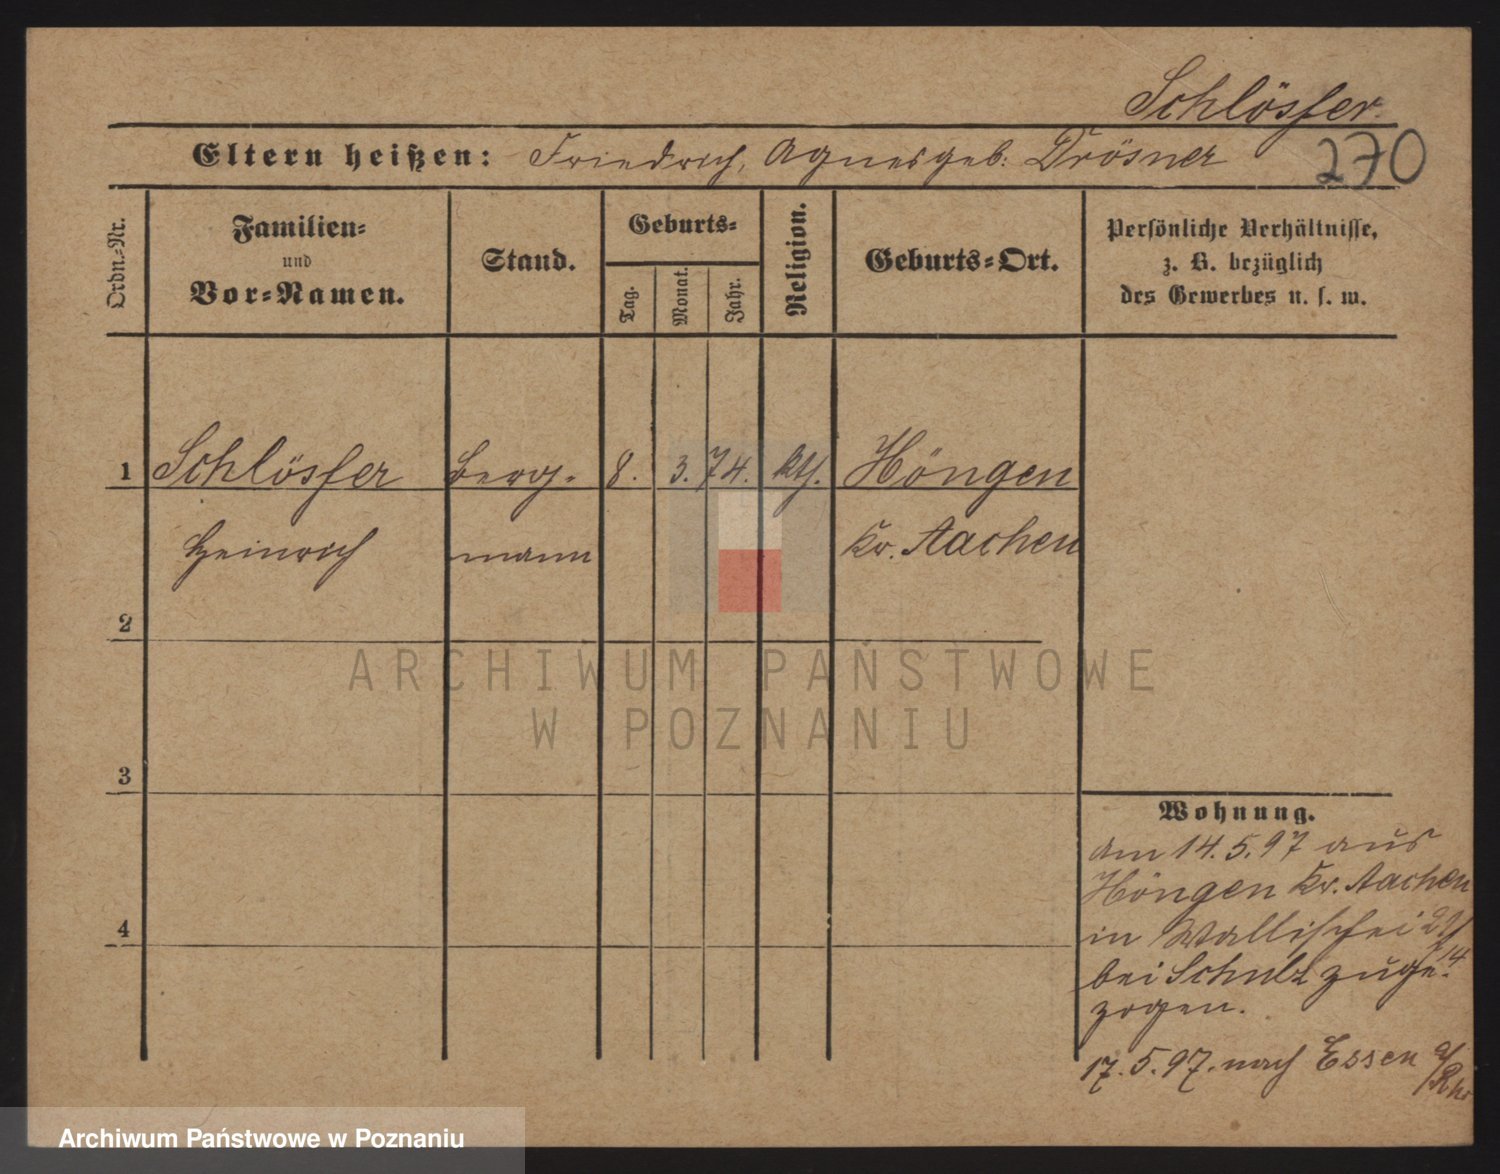 Schlösser.
Eltern heißen: Friedrich, Agnes geb. Drösner
270
Ordn.=Nr.
Familien=
und
Vor=Namen.
Stand.
Geburts=
Tag.
Monat.
Jahr.
Religion.
Geburts=Ort.
Persönliche Verhältnisse,
z. B. bezüglich
des Gewerbes u. s. w.
1 Schlösser Berg= 8. 3. 74. kth. Höngen
Heinrich mann Kr. Aachen
2
3
4
Wohnung.
am 14.5.97 aus
Höngen Kr. Aachen
in Wallischei
bei Schulz zuge=
zogen.
17.5.97. nach Essen a/Rhr
ARCHIWUM PAŃSTWOWE
W POZNANIU
Archiwum Państwowe w Poznaniu